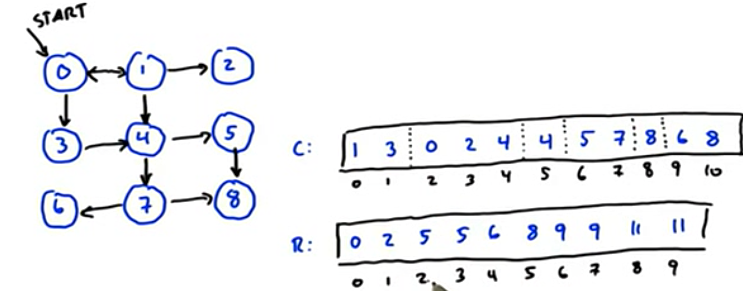 START
0 1 2
3 4 5
6 7 8
C: 1 3 0 2 4 4 5 7 8 6 8
0 1 2 3 4 5 6 7 8 9 10
R: 0 2 5 5 6 8 9 9 11 11
0 1 2 3 4 5 6 7 8 9